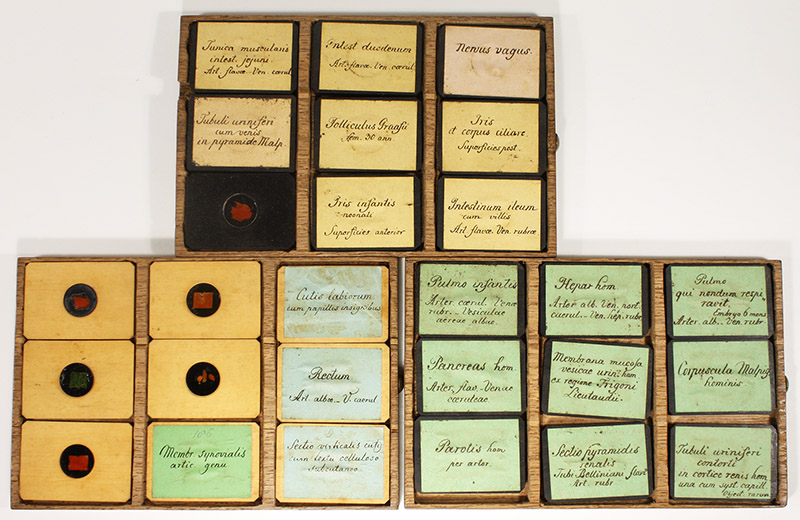 Tunica muscularis
intest. jejuni.
Art. flavæ. Ven. cærul
Intest duodenum
Art. flavæ. Ven. cærul
Nervus vagus.
Tubuli uriniferi
cum venis
in pyramide Malp.
Folliculus Graafii
fem. 30 ann.
Iris
et corpus ciliare.
Superficies post.
Iris infantis
neonati
Superficies anterior
Intestinum ileum
cum villis
Art. flavæ. Ven. rubræ
Cutis labiorum
cum papillis insignibus
Rectum
Art. albæ. V. cærul
Membr synovialis
artic genu
Sectio verticalis cutis
cum textu celluloso
subcutaneo.
Pulmo infantis
Arter cærul. Venæ
rubr. Vesiculae
aereae albae.
Hepar hom
Arter alb. Ven. port.
caerul. Ven. hep. rubr
Pulmo
qui nondum respi
ravit.
Embryo 6 mens
Arter. alb. Ven. rubr
Pancreas hom
Arter, flav. Venae
caeruleae.
Membrana mucosa
vesicae urin. hom
ex regione Trigoni
Lieutaudii.
Corpuscula Malpig
hominis
Parotis hom
per arter.
Sectio pyramidis
renalis
Tubi Belliniani flav
Art. rubr
Tubuli uriniferi
contorti
in cortice renis hom
una cum syst. capill.